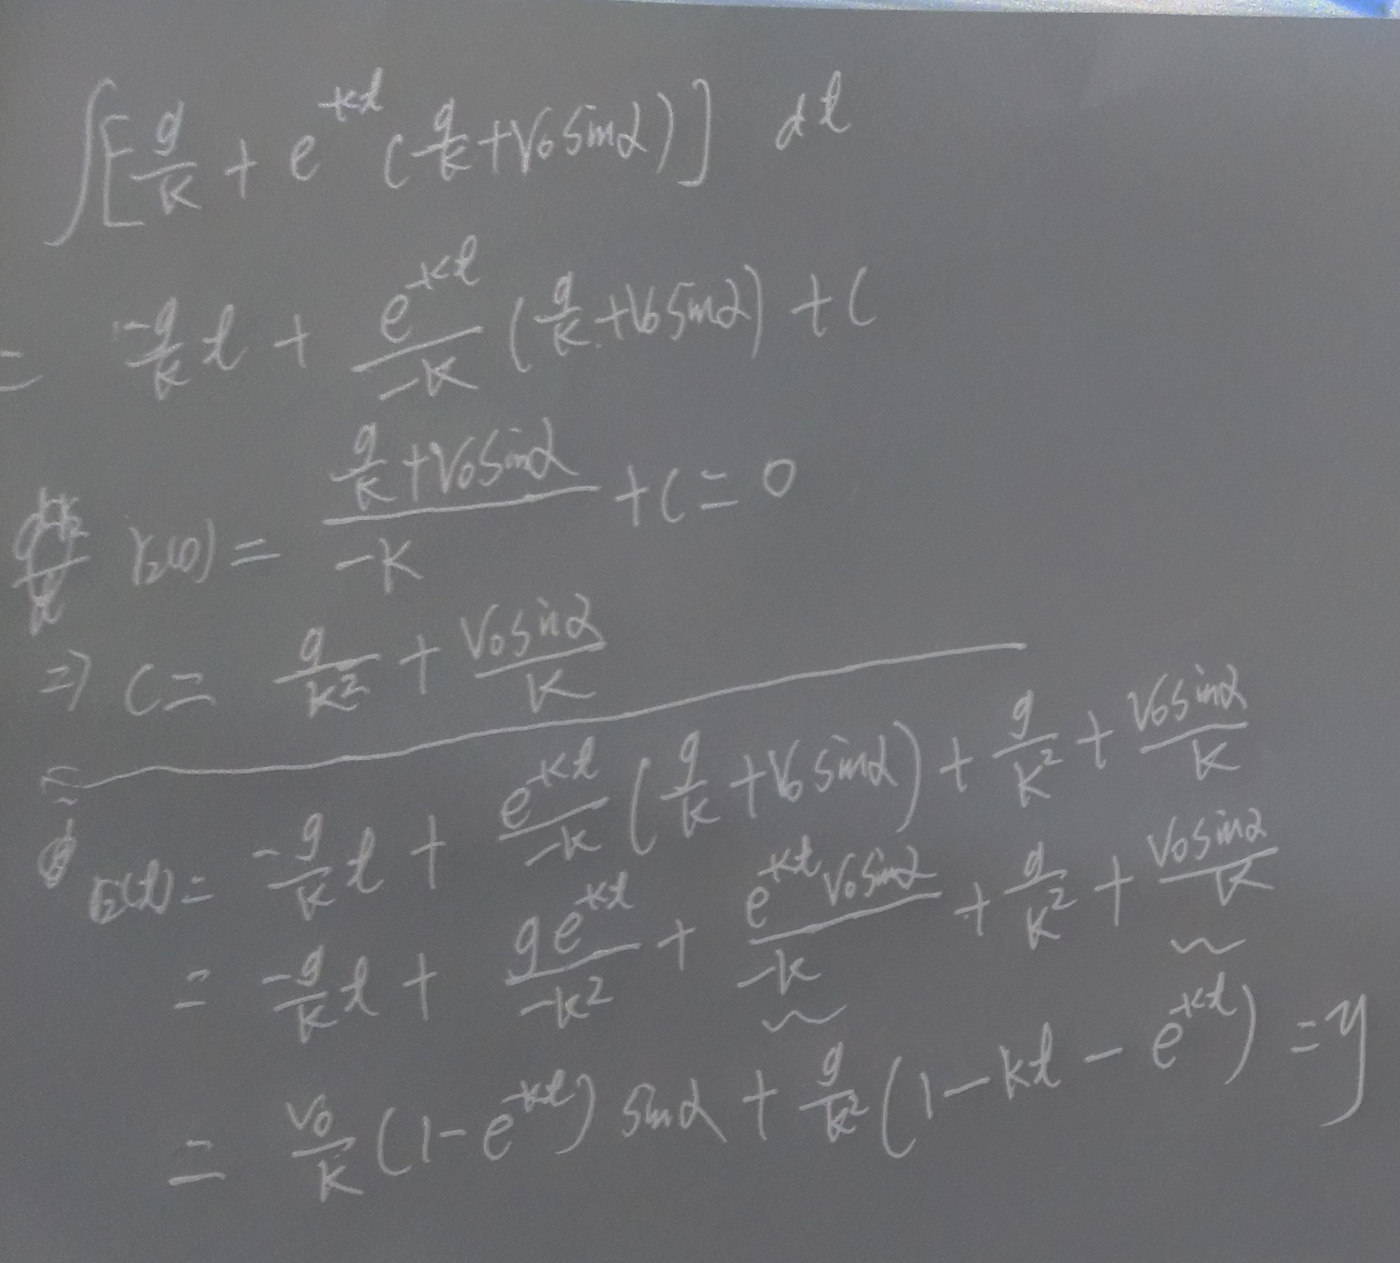 ∫[g/k + e^{-kt} (g/k + V₀ sinα)] dt
= -g/k t + e^{-kt}/-k (g/k + V₀ sinα) + C
r₂(0) = (g/k + V₀ sinα)/-k + C = 0
⇒ C = g/k² + V₀ sinα/k
r₂(t) = -g/k t + e^{-kt}/-k (g/k + V₀ sinα) + g/k² + V₀ sinα/k
= -g/k t + ge^{-kt}/-k² + e^{-kt} V₀ sinα/-k + g/k² + V₀ sinα/k
= V₀/k (1 - e^{-kt}) sinα + g/k² (1 - kt - e^{-kt}) = y